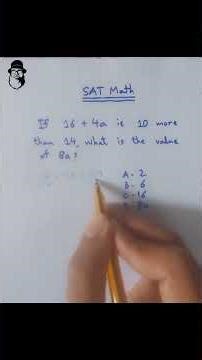 SAT Math
If 16 + 4a is 10 more
than 14, what is the value
of 8a?
A - 2
B - 6
C - 16